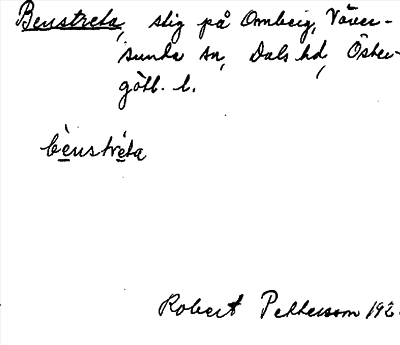 Benstreta, stig på Omberg, Väver-
sunda sn, Dals hd, Öster-
götl. l.
bènstréta
Robert Pettersson 192